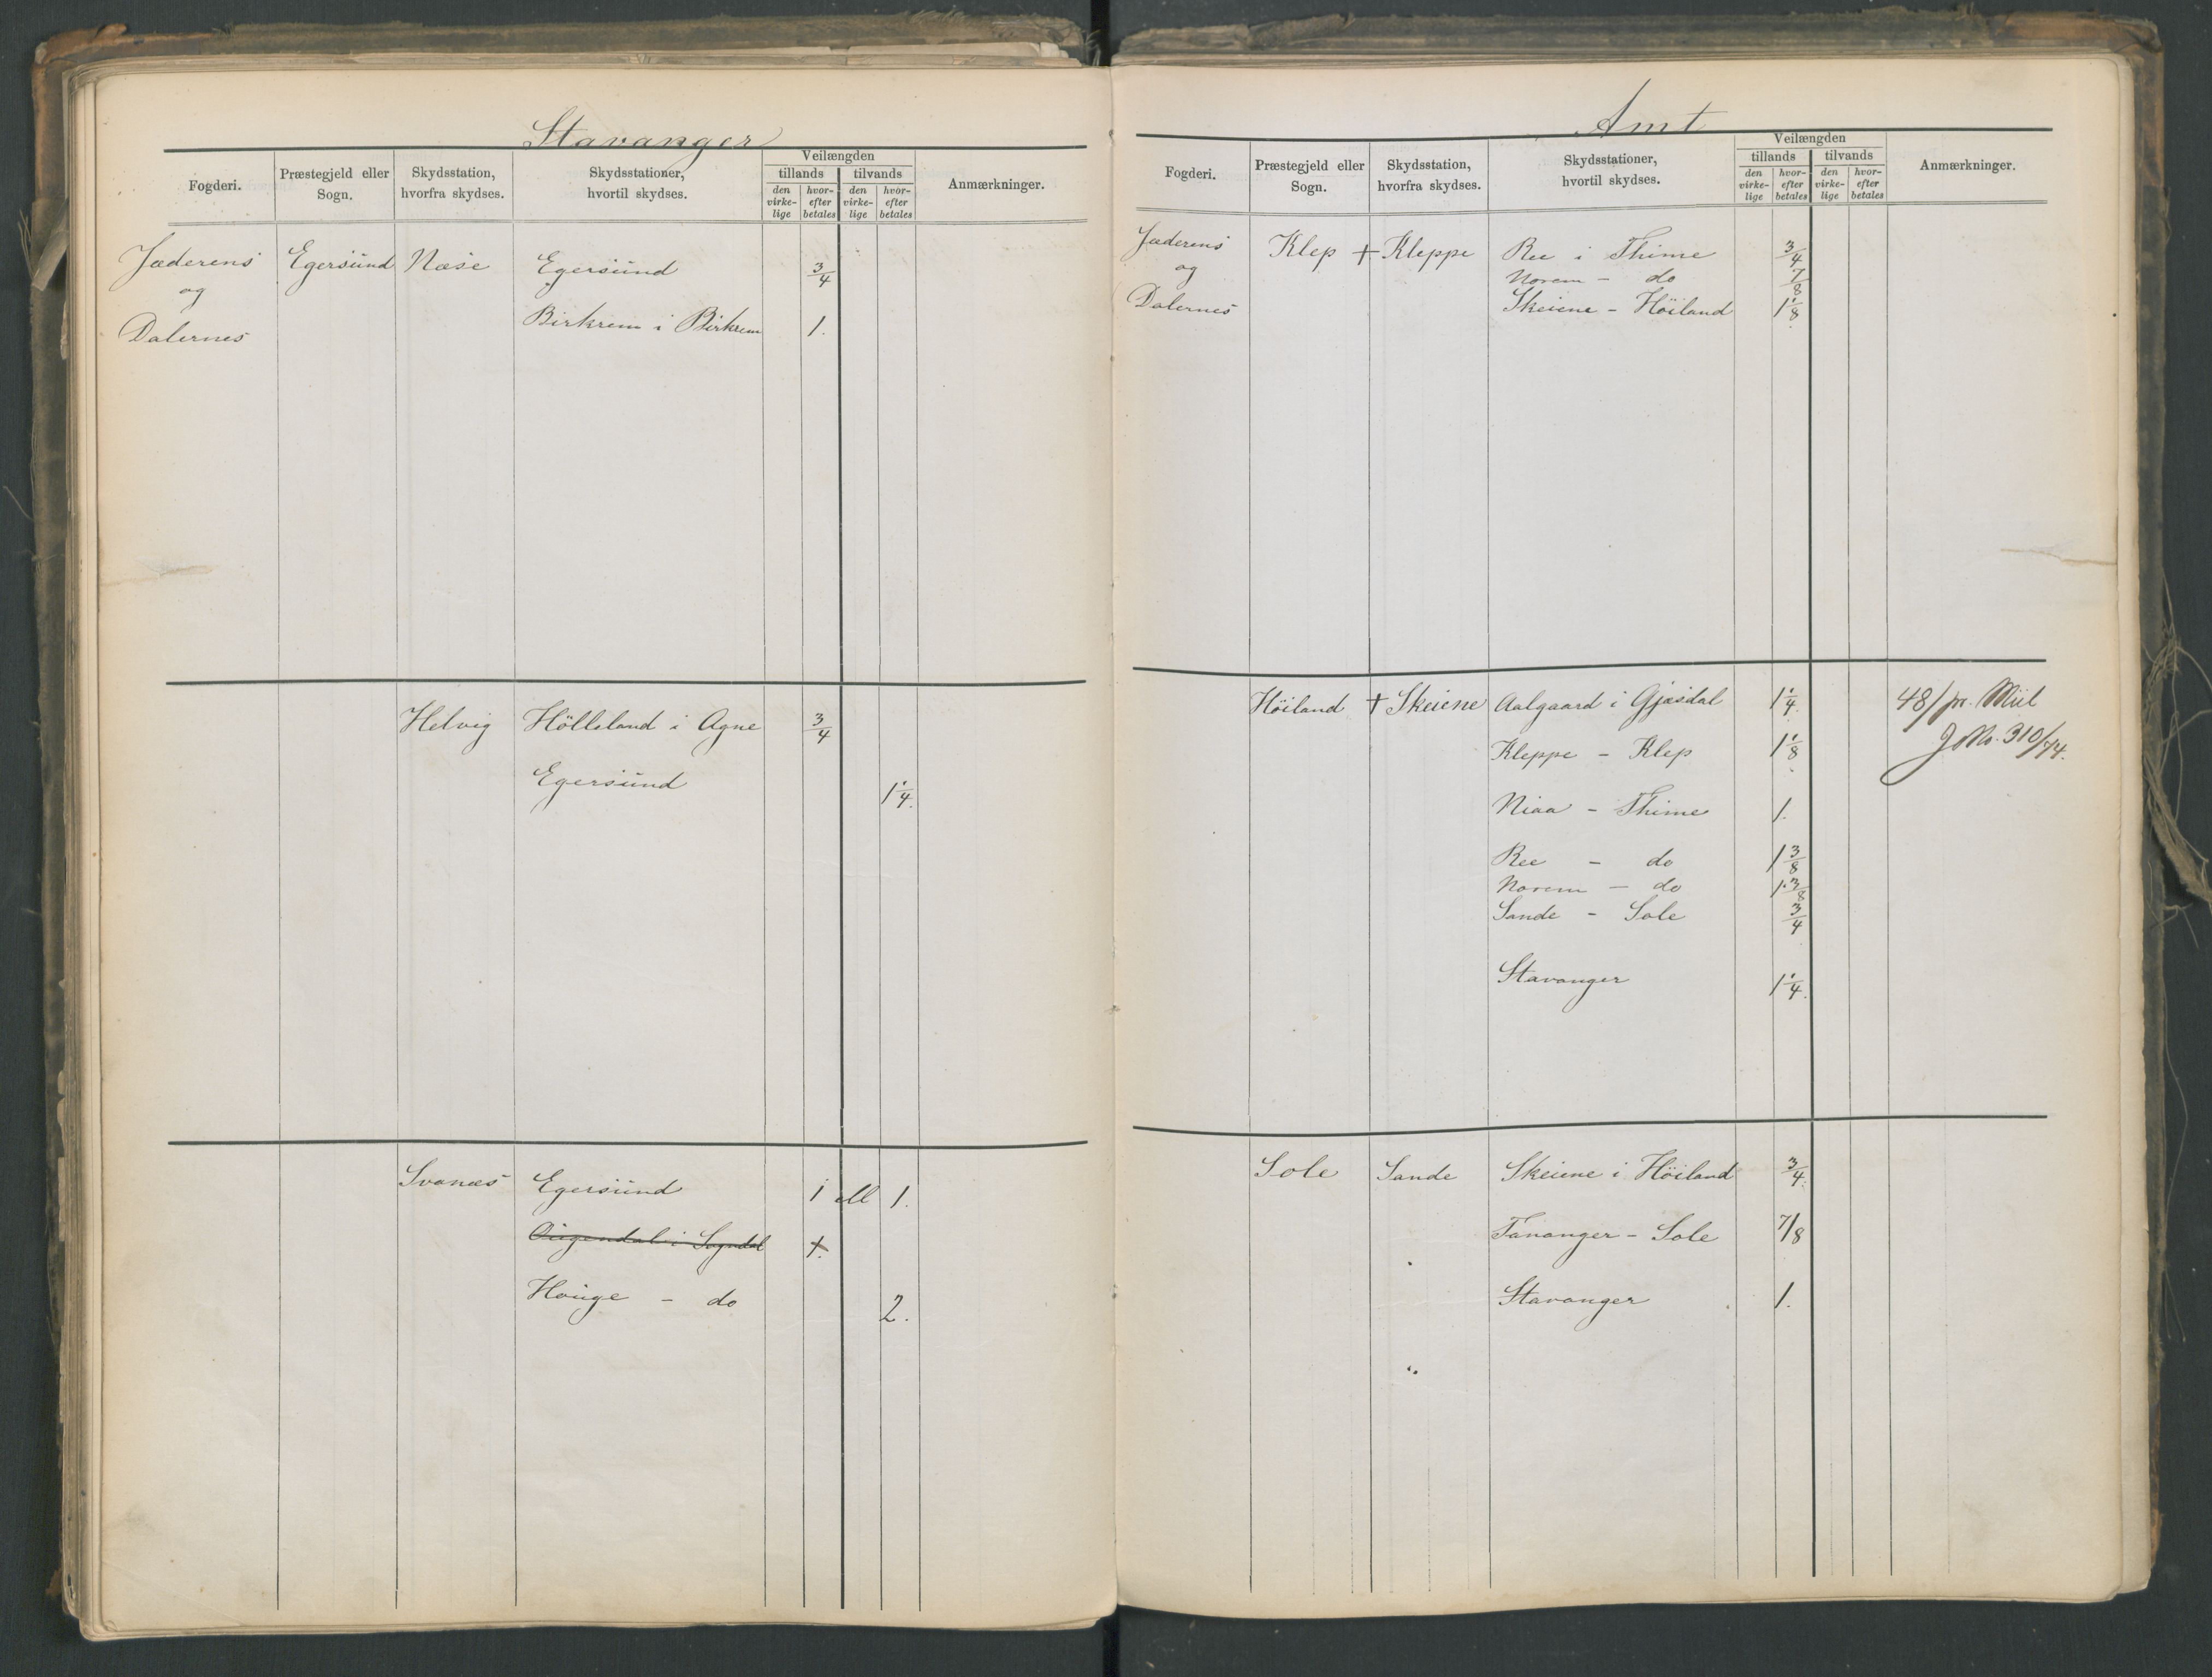 Stavanger
Fogderi. Præstegjeld eller Sogn. Skydsstation, hvorfra skydses. Skydsstationer, hvortil skydses. Veilængden tillands den virke-lige hvor-efter betales tilvands den virke-lige hvor-efter betales Anmærkninger.
Jæderens Egersund Næse Egersund 3/4
og
Dalernes Birkrem i Birkrem 1.
Helvig Hölleland i Ogne 3/4
Egersund 1 1/4.
Svanæs Egersund 1 ell 1.
Augendal i Sogndal 1.
Hauge - do 2.
Amt
Fogderi. Præstegjeld eller Sogn. Skydsstation, hvorfra skydses. Skydsstationer, hvortil skydses. Veilængden tillands den virke-lige hvor-efter betales tilvands den virke-lige hvor-efter betales Anmærkninger.
Jæderens Klep + Kleppe Ree i Thime 3/4
og Norem - do 7/8
Dalernes Skeiene - Höiland 1 1/8
Höiland + Skeiene Aalgaard i Gjæsdal 1 1/4. 48/ pr. Miil
Kleppe - Klep 1 1/8 J No. 310/74.
Niaa - Thime 1.
Ree - do 1 3/8
Norem - do 1 3/8
Sande - Sole 3/4
Stavanger 1 1/4.
Sole Sande Skeiene i Höiland 3/4.
Tananger - Sole 7/8
Stavanger 1.